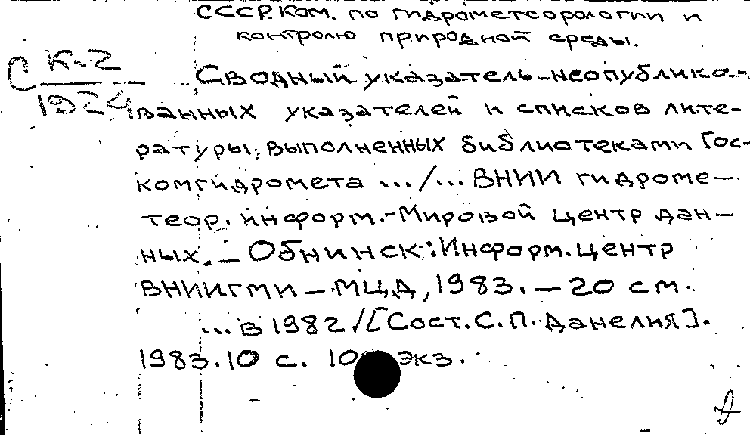 СССР. Ком. по гидрометеорологии и
контролю природной среды.
С К-2
1924
Сводный указатель неопублико-
ванных указателей и списков лите-
ратуры, выполненных библиотеками Гос-
комгидромета .../... ВНИИ гидроме-
теор. информ.-Мировой центр дан-
ных. – Обнинск: Информ. центр
ВНИИГМИ – МЦД, 1983. – 20 см.
... в 1982 / [Сост. С. П. Данелия].
1983. 10 с. экз.